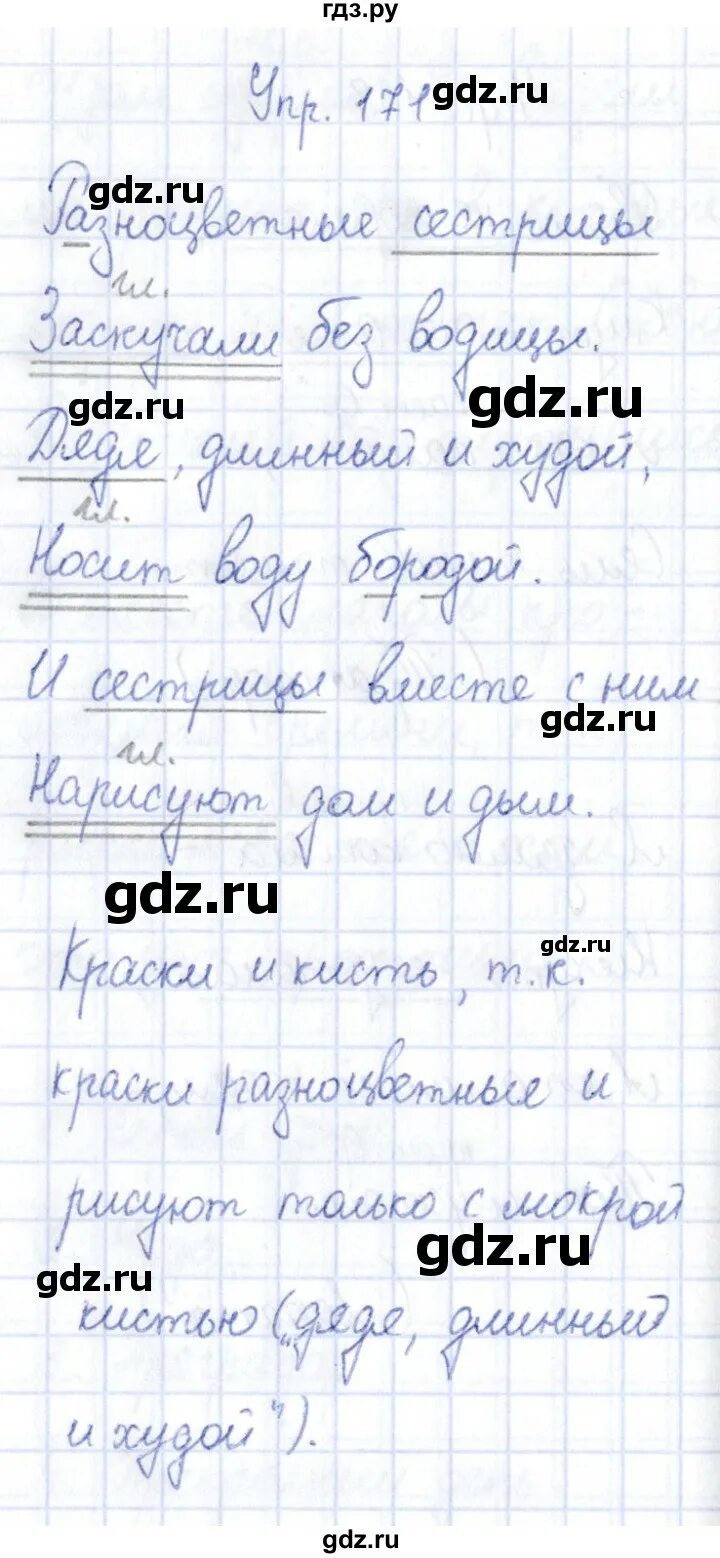 гдз.ру
Упр. 171
gdz.ru
gdz.ru
Разноцветные сестрицы
гл.
Заскучали без водицы.
gdz.ru
gdz.ru
Дядя, длинный и худой,
гл.
Носит воду бородой.
И сестрицы вместе с ним
gdz.ru
гл.
Нарисуют дом и дым.
gdz.ru
gdz.ru
Краски и кисть, т.к.
краски разноцветные и
рисуют только с мокрой
gdz.ru
gdz.ru
кистью („дядя, длинный
и худой").
gdz.ru